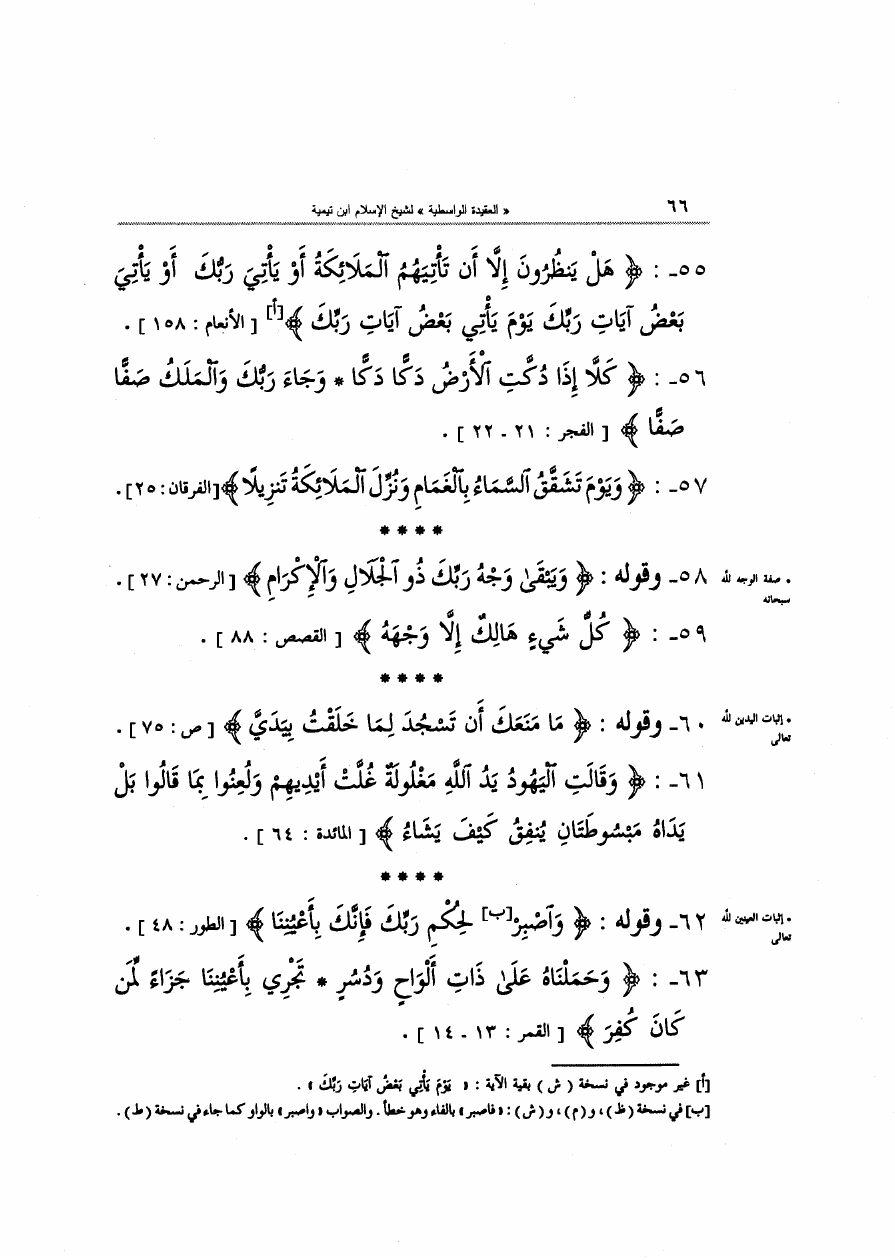 ٦٦
« العقيدة الواسطية » لشيخ الإسلام ابن تيمية
٥٥ـ : ﴿ هَلْ يَنظُرُونَ إِلَّا أَن تَأْتِيَهُمُ ٱلْمَلَائِكَةُ أَوْ يَأْتِيَ رَبُّكَ أَوْ يَأْتِيَ
بَعْضُ آيَاتِ رَبِّكَ يَوْمَ يَأْتِي بَعْضُ آيَاتِ رَبِّكَ ﴾[أ] [ الأنعام : ١٥٨ ] .
٥٦ـ : ﴿ كَلَّا إِذَا دُكَّتِ ٱلْأَرْضُ دَكًّا دَكًّا * وَجَاءَ رَبُّكَ وَٱلْمَلَكُ صَفًّا
صَفًّا ﴾ [ الفجر : ٢١ ـ ٢٢ ] .
٥٧ـ : ﴿ وَيَوْمَ تَشَقَّقُ ٱلسَّمَاءُ بِٱلْغَمَامِ وَنُزِّلَ ٱلْمَلَائِكَةُ تَنزِيلًا ﴾ [الفرقان : ٢٥] .
* * * *
• صفة الوجه لله
سبحانه
٥٨ـ وقوله : ﴿ وَيَبْقَىٰ وَجْهُ رَبِّكَ ذُو ٱلْجَلَالِ وَٱلْإِكْرَامِ ﴾ [ الرحمن : ٢٧ ] .
٥٩ـ : ﴿ كُلُّ شَيْءٍ هَالِكٌ إِلَّا وَجْهَهُ ﴾ [ القصص : ٨٨ ] .
* * * *
• إثبات اليدين لله
تعالى
٦٠ـ وقوله : ﴿ مَا مَنَعَكَ أَن تَسْجُدَ لِمَا خَلَقْتُ بِيَدَيَّ ﴾ [ ص : ٧٥ ] .
٦١ـ : ﴿ وَقَالَتِ ٱلْيَهُودُ يَدُ ٱللَّهِ مَغْلُولَةٌ غُلَّتْ أَيْدِيهِمْ وَلُعِنُوا بِمَا قَالُوا بَلْ
يَدَاهُ مَبْسُوطَتَانِ يُنفِقُ كَيْفَ يَشَاءُ ﴾ [ المائدة : ٦٤ ] .
* * * *
• إثبات العينين لله
تعالى
٦٢ـ وقوله : ﴿ وَٱصْبِرْ[ب] لِحُكْمِ رَبِّكَ فَإِنَّكَ بِأَعْيُنِنَا ﴾ [ الطور : ٤٨ ] .
٦٣ـ : ﴿ وَحَمَلْنَاهُ عَلَىٰ ذَاتِ أَلْوَاحٍ وَدُسُرٍ * تَجْرِي بِأَعْيُنِنَا جَزَاءً لِّمَن
كَانَ كُفِرَ ﴾ [ القمر : ١٣ ـ ١٤ ] .
[أ] غير موجود في نسخة ( ش ) بقية الآية : « يَوْمَ يَأْتِي بَعْضُ آيَاتِ رَبِّكَ » .
[ب] في نسخة (ظ) ، و(م) ، و(ش) : « فاصبر » بالفاء وهو خطأ . والصواب « واصبر » بالواو كما جاء في نسخة (ط) .